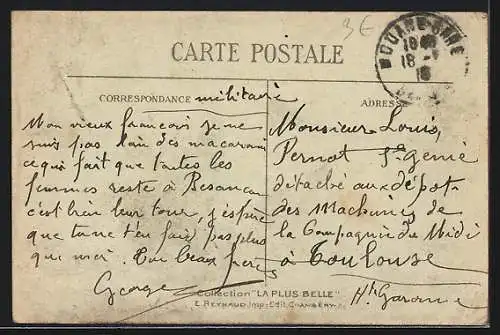 3€
CARTE POSTALE
CORRESPONDANCE militaire
ADRESSE
Mon vieux francois je ne
suis pas loin des macaroni
ce qui fait que toutes les
femmes reste à Besançon
c'est bien leur tour, j'espère
que tu ne t'en fais pas plus
que moi. Ton beau frère
George
Monsieur Louis
Pernot Sr Génie
détaché aux dépot
des Machines de
la Compagnie du Midi
à Toulouse
Hte Garonne
Collection "LA PLUS BELLE"
E. REYNAUD Imp.-Edit. CHAMBÉRY